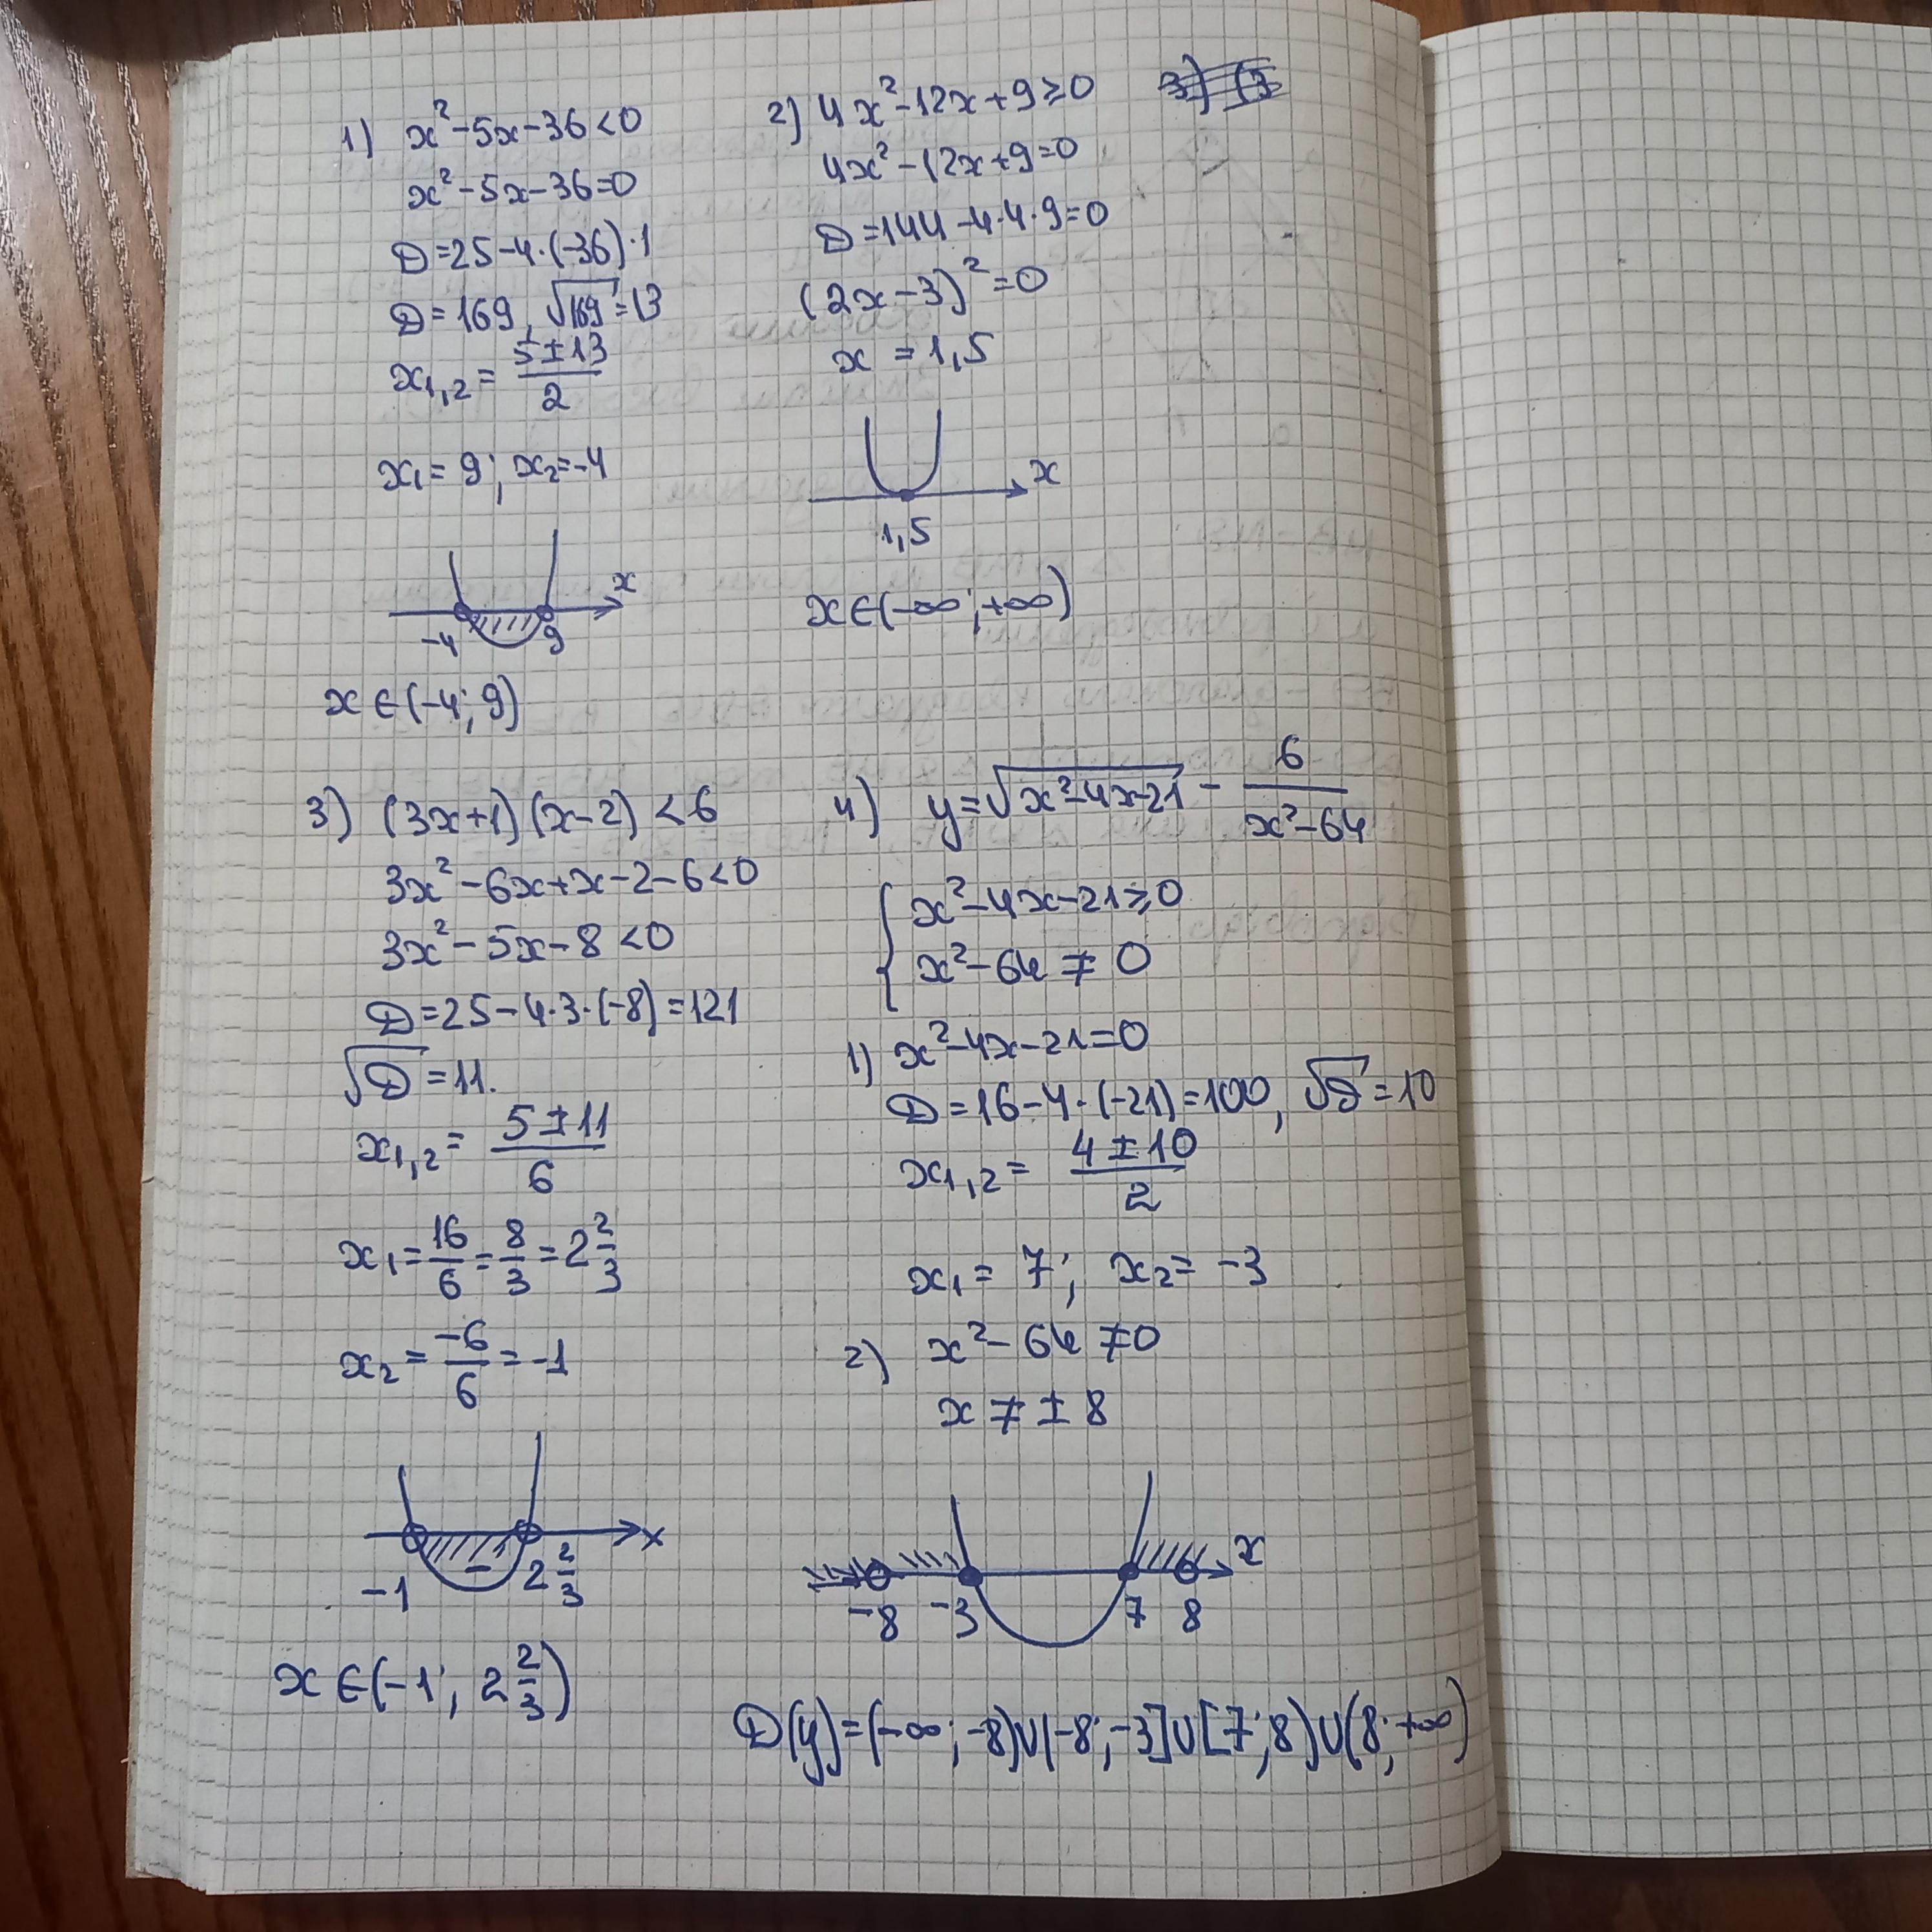 1) x²-5x-36<0
x²-5x-36=0
D=25-4·(-36)·1
D=169, √169=13
x₁,₂ = (5±13)/2
x₁=9; x₂=-4
x
-4 9
x∈(-4; 9)
2) 4x²-12x+9≥0
4x²-12x+9=0
D=144-4·4·9=0
(2x-3)²=0
x = 1,5
x
1,5
x∈(-∞; +∞)
3) (3x+1)(x-2)<6
3x²-6x+x-2-6<0
3x²-5x-8<0
D=25-4·3·(-8)=121
√D=11.
x₁,₂ = (5±11)/6
x₁=16/6=8/3=2 2/3
x₂ = -6/6 = -1
x
-
-1 2 2/3
x∈(-1; 2 2/3)
4) y=√(x²-4x-21) - 6/(x²-64)
{ x²-4x-21≥0
x²-64≠0
1) x²-4x-21=0
D=16-4·(-21)=100, √D=10
x₁,₂ = (4±10)/2
x₁ = 7; x₂ = -3
2) x²-64≠0
x≠±8
x
-8 -3 7 8
D(y)=(-∞; -8)∪(-8; -3]∪[7; 8)∪(8; +∞)